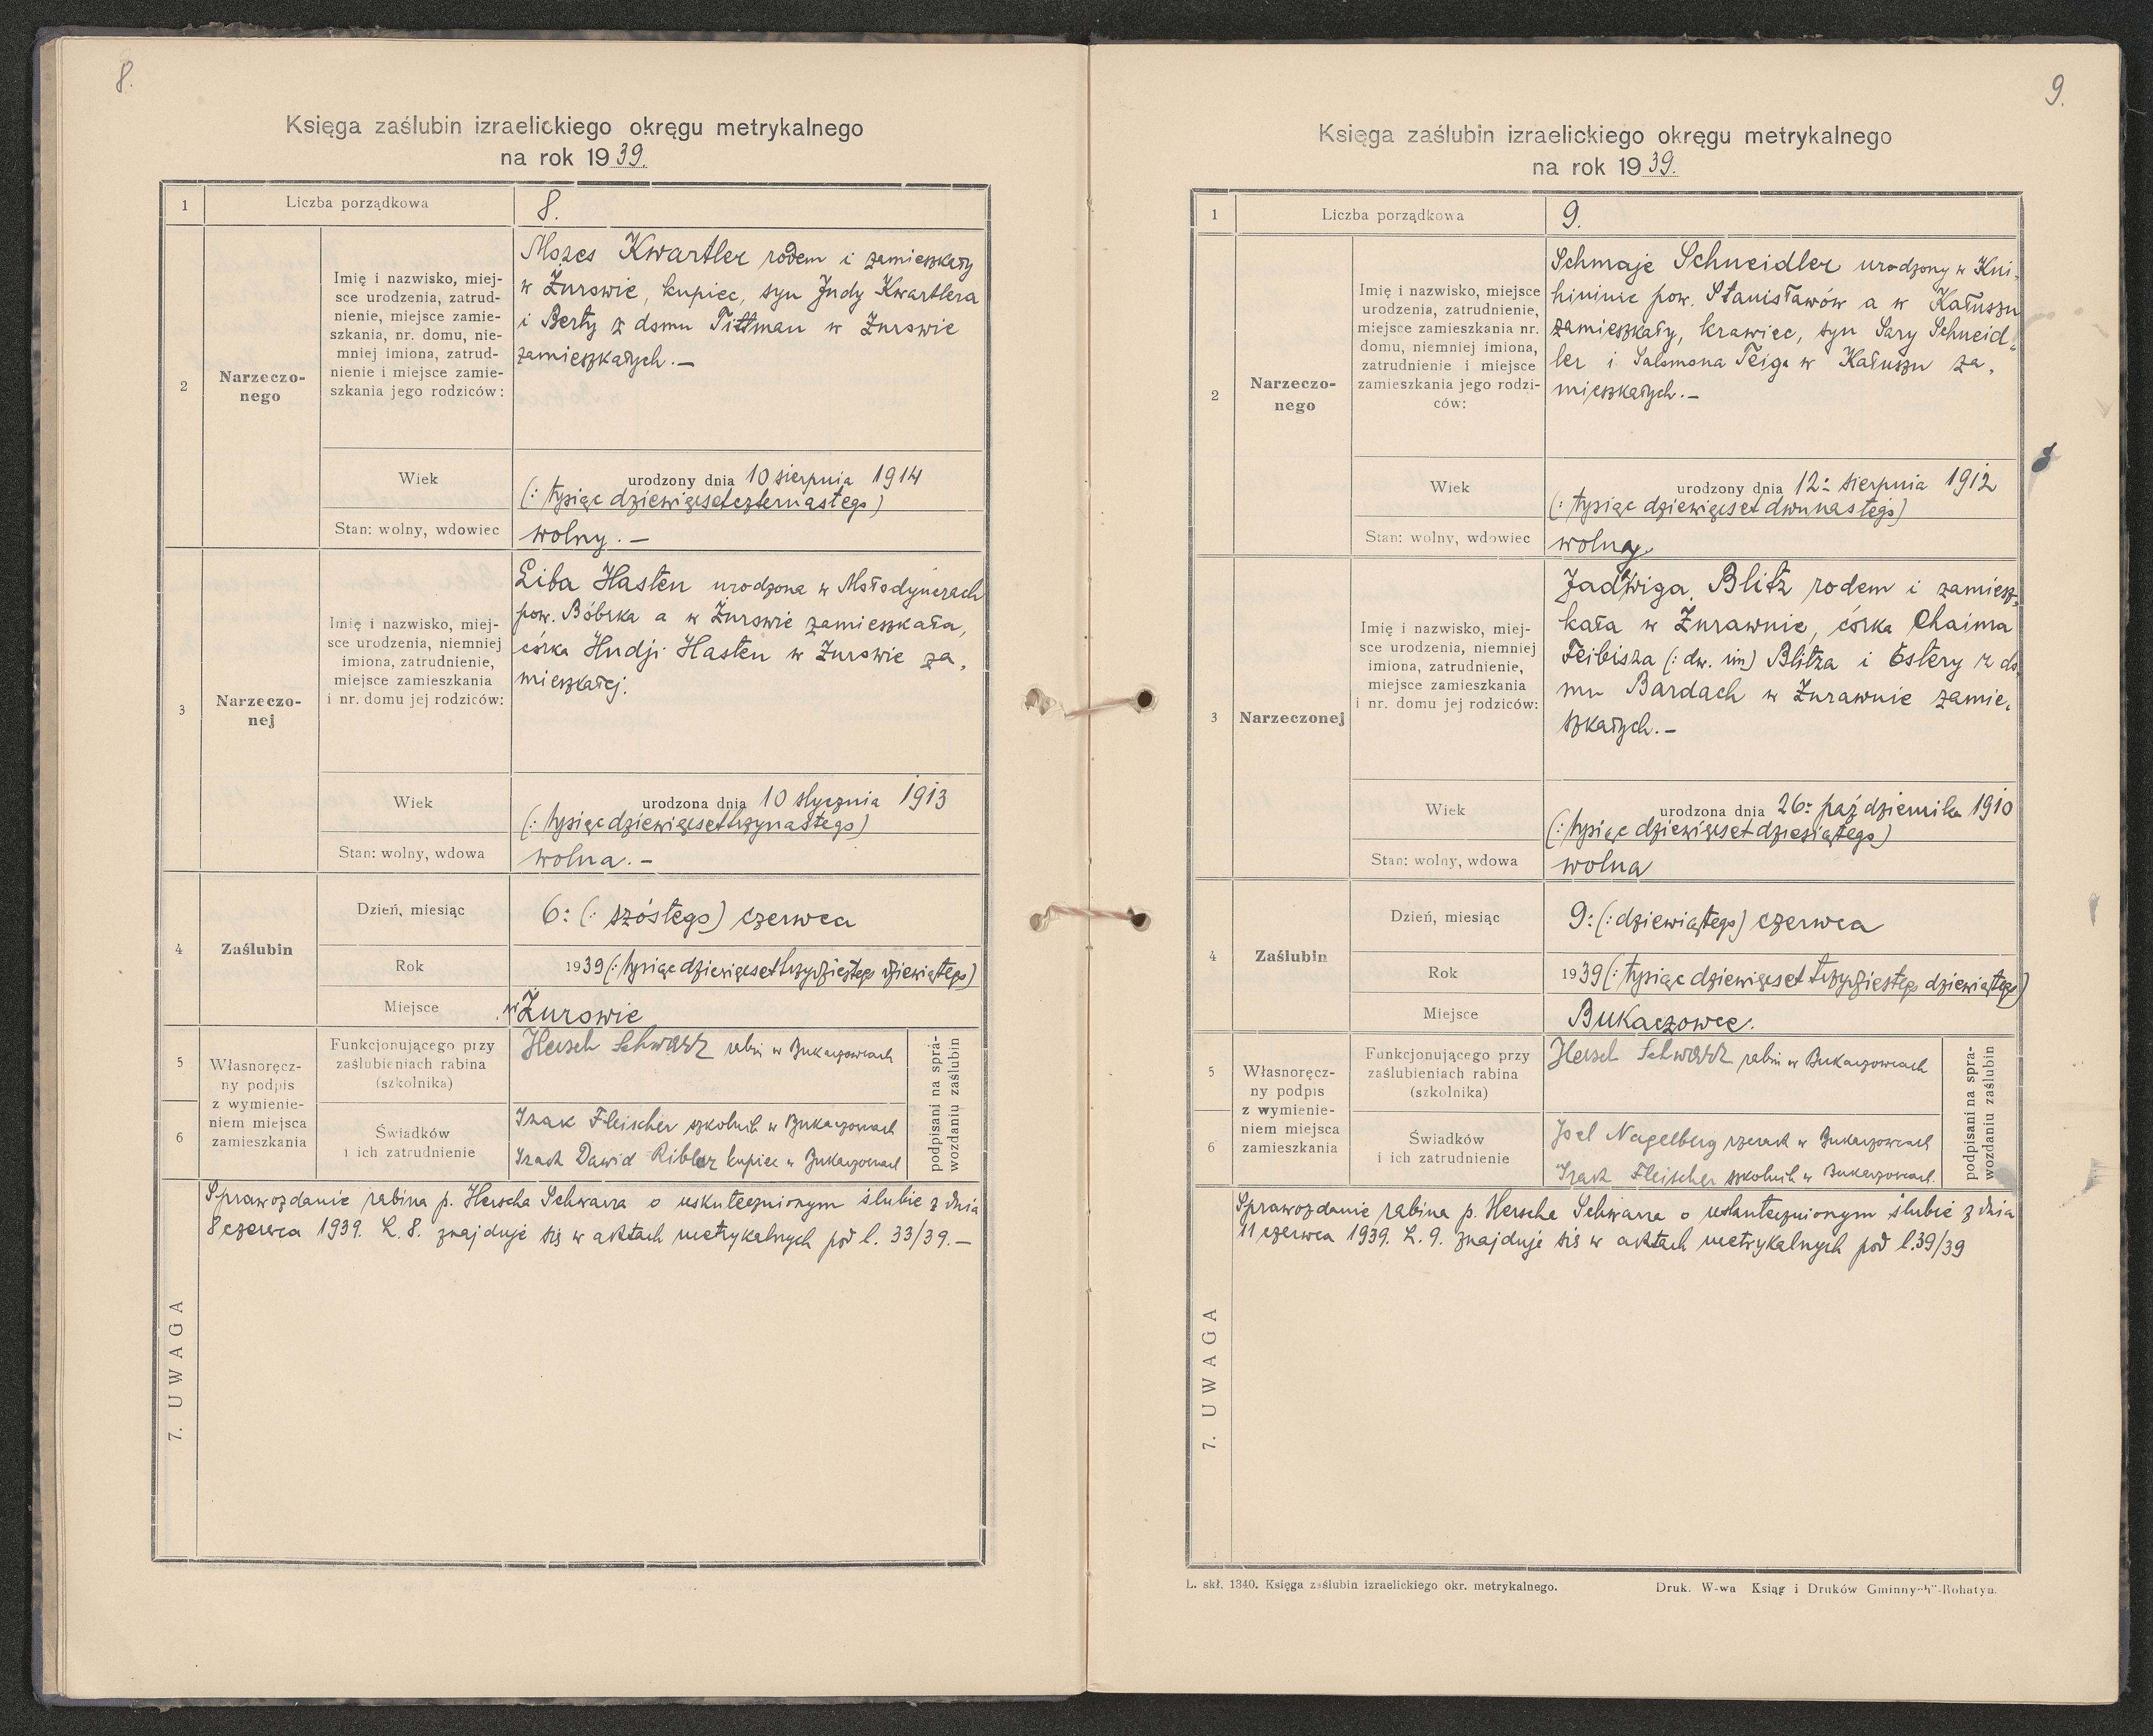 8.
Księga zaślubin izraelickiego okręgu metrykalnego
na rok 1939.
1
Liczba porządkowa
8.
2
Narzeczo-
nego
Imię i nazwisko, miej-
sce urodzenia, zatrud-
nienie, miejsce zamie-
szkania, nr. domu, nie-
mniej imiona, zatrud-
nienie i miejsce zamie-
szkania jego rodziców:
Mozes Kwartler rodem i zamieszkały
w Żurowie, kupiec, syn Judy Kwartlera
i Berty z domu Tittman w Żurowie
zamieszkałych.—
Wiek
urodzony dnia 10 sierpnia 1914
(: tysiąc dziewięćset czternastego)
Stan: wolny, wdowiec
wolny.—
3
Narzeczo-
nej
Imię i nazwisko, miej-
sce urodzenia, niemniej
imiona, zatrudnienie,
miejsce zamieszkania
i nr. domu jej rodziców:
Liba Hasten urodzona w Mołodyńczach
pow. Bóbrka a w Żurowie zamieszkała,
córka Hudji Hasten w Żurowie za-
mieszkałej.
Wiek
urodzona dnia 10 stycznia 1913
(: tysiąc dziewięćset trzynastego)
Stan: wolny, wdowa
wolna.—
4
Zaślubin
Dzień, miesiąc
6: (: szóstego) czerwca
Rok
1939 (: tysiąc dziewięćset trzydziestego dziewiątego)
Miejsce
w Żurowie
5
6
Własnoręcz-
ny podpis
z wymienie-
niem miejsca
zamieszkania
Funkcjonującego przy
zaślubieniach rabina
(szkolnika)
Hersch Schwarz rabin w Bukaczowcach
Świadków
i ich zatrudnienie
Izak Fleischer szkolnik w Bukaczowcach
Izack Dawid Ribler kupiec w Bukaczowcach
podpisani na spra-
wozdaniu zaślubin
7. UWAGA
Sprawozdanie rabina p. Herscha Schwarza o uskutecznionym ślubie z dnia
8 czerwca 1939. L. 8. znajduje się w aktach metrykalnych pod l. 33/39.—
9.
Księga zaślubin izraelickiego okręgu metrykalnego
na rok 1939.
1
Liczba porządkowa
9.
2
Narzeczo-
nego
Imię i nazwisko, miejsce
urodzenia, zatrudnienie,
miejsce zamieszkania nr.
domu, niemniej imiona,
zatrudnienie i miejsce
zamieszkania jego rodzi-
ców:
Schmaje Schneidler urodzony w Kni-
hininie pow. Stanisławów a w Kałuszu
zamieszkały, krawiec, syn Sary Schneid-
ler i Salomona Feiga w Kałuszu za-
mieszkałych.—
Wiek
urodzony dnia 12: sierpnia 1912
(: tysiąc dziewięćset dwunastego)
Stan: wolny, wdowiec
wolny.
3
Narzeczonej
Imię i nazwisko, miej-
sce urodzenia, niemniej
imiona, zatrudnienie,
miejsce zamieszkania
i nr. domu jej rodziców:
Jadwiga Blitz rodem i zamiesz-
kała w Żurawnie, córka Chaima
Feibisza (: dw. im) Blitza i Estery z do-
mu Bardach w Żurawnie zamie-
szkałych.—
Wiek
urodzona dnia 26: października 1910
(: tysiąc dziewięćset dziesiątego)
Stan: wolny, wdowa
wolna
4
Zaślubin
Dzień, miesiąc
9: (: dziewiątego) czerwca
Rok
1939 (: tysiąc dziewięćset trzydziestego dziewiątego)
Miejsce
Bukaczowce.
5
6
Własnoręcz-
ny podpis
z wymienie-
niem miejsca
zamieszkania
Funkcjonującego przy
zaślubieniach rabina
(szkolnika)
Hersch Schwarz rabin w Bukaczowcach
Świadków
i ich zatrudnienie
Josl Nagelberg rzezak w Bukaczowcach
Izack Fleischer szkolnik w Bukaczowcach.
podpisani na spra-
wozdaniu zaślubin
7. UWAGA
Sprawozdanie rabina p. Herscha Schwarza o uskutecznionym ślubie z dnia
11 czerwca 1939. L. 9. znajduje się w aktach metrykalnych pod l. 39/39
L. skł. 1340. Księga zaślubin izraelickiego okr. metrykalnego.
Druk. W-wa Ksiąg i Druków Gminnych"-Rohatyn.